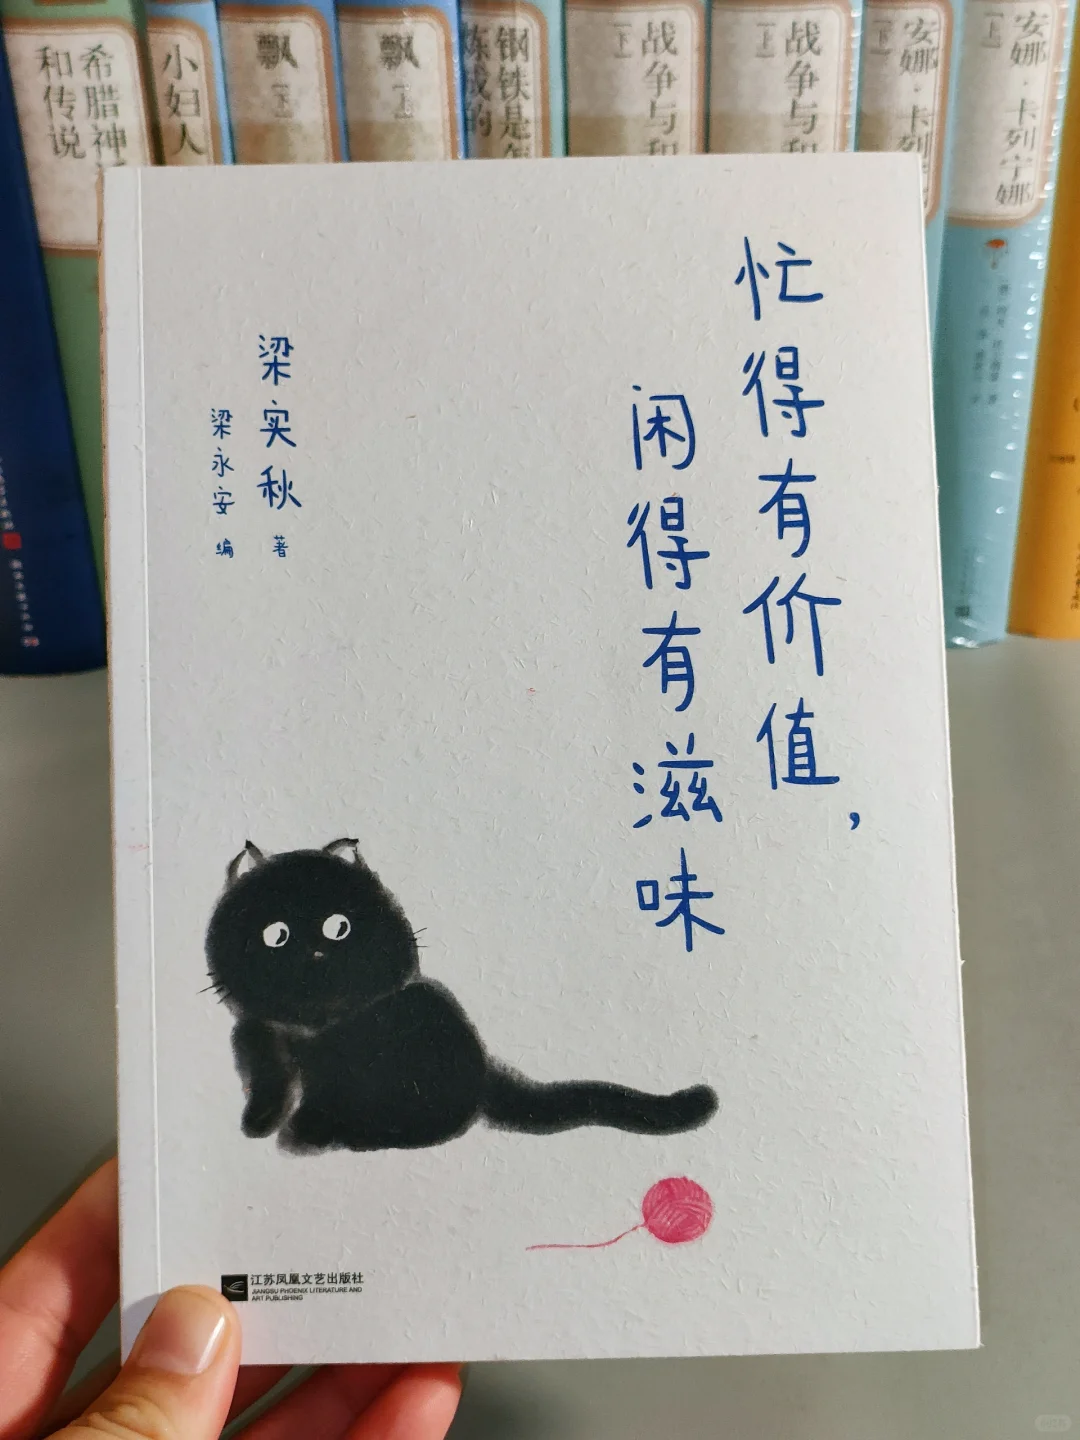 忙得有价值，
闲得有滋味
梁实秋 著
梁永安 编
江苏凤凰文艺出版社
JIANGSU PHOENIX LITERATURE AND
ART PUBLISHING
希腊神
和传说
小妇人
飘
[下]
飘
[上]
钢铁是怎
炼成的
战争与和
[下]
战争与和
[上]
安娜·卡列
[下]
安娜·卡列宁娜
[上]